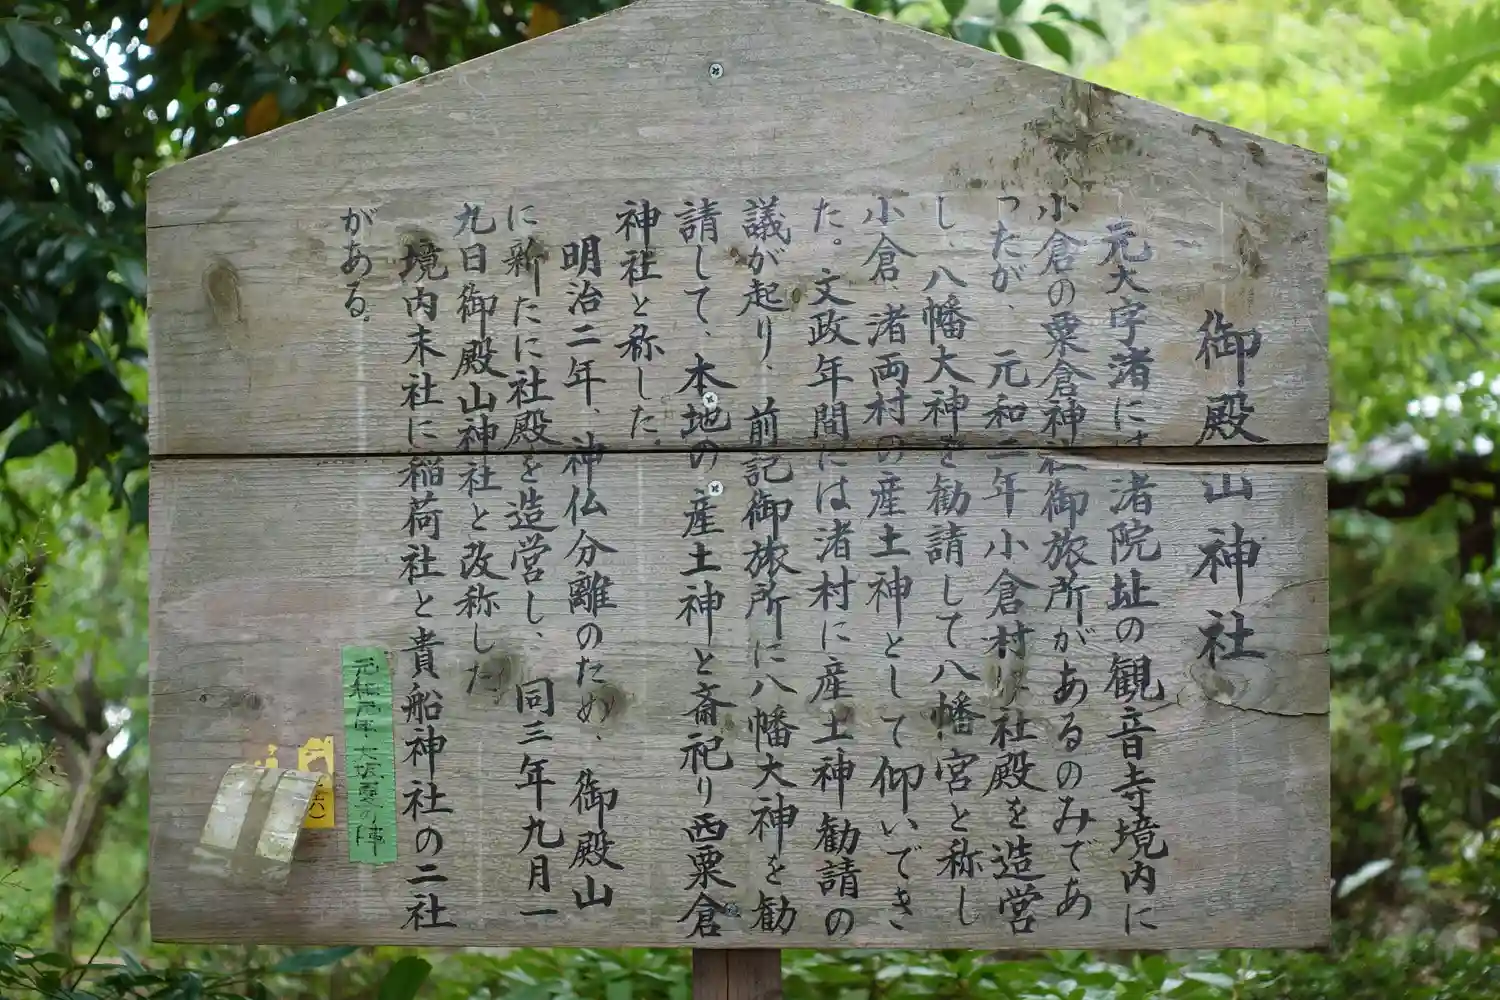 御殿山神社
元大字渚には渚院址の観音寺境内に
小倉の粟倉神社御旅所があるのみであ
ったが、元和二年小倉村は社殿を造営
し、八幡大神を勧請して八幡宮と称し
小倉、渚両村の産土神として仰いでき
た。文政年間には渚村に産土神勧請の
議が起り、前記御旅所に八幡大神を勧
請して、本地の産土神と斎祀り西粟倉
神社と称した。
明治二年、神仏分離のため、御殿山
に新たに社殿を造営し、同三年九月一
九日御殿山神社と改称した。
境内末社に稲荷社と貴船神社の二社
がある。
元和元年・大坂夏の陣